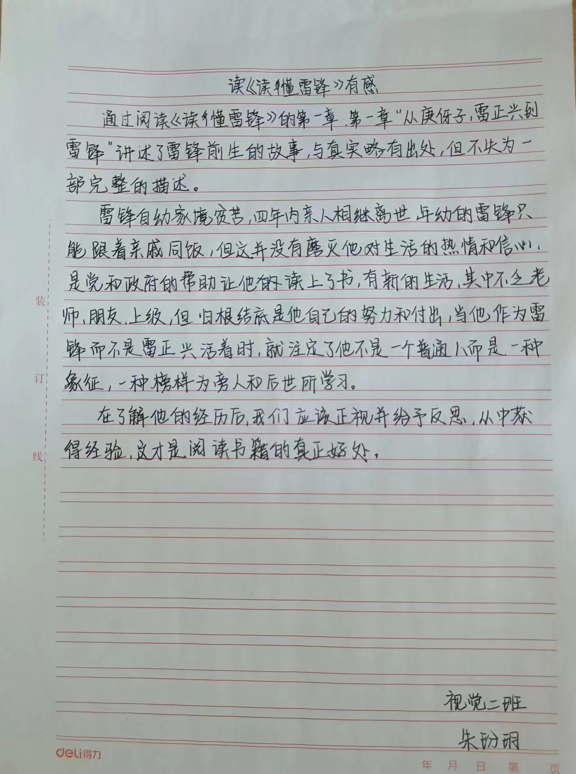 读《读懂雷锋》有感
通过阅读《读懂雷锋》的第一章 第一章“从庚伢子,雷正兴到
雷锋”讲述了雷锋前生的故事,与真实略有出处,但不失为一
部完整的描述。
雷锋自幼家境贫苦,四年内亲人相继离世 年幼的雷锋只
能跟着亲戚同饭,但这并没有磨灭他对生活的热情和信心,
是党和政府的帮助让他的读上了书,有新的生活,其中不乏老
师,朋友,上级,但归根结底是他自己的努力和付出,当他作为雷
锋而不是雷正兴活着时,就注定了他不是一个普通人而是一种
象征,一种榜样为旁人和后世所学习。
在了解他的经历后,我们应该正视并给予反思,从中获
得经验,这才是阅读书籍的真正好处。
装
订
线
视觉二班
朱玢玥
deli得力
年 月 日 第 页